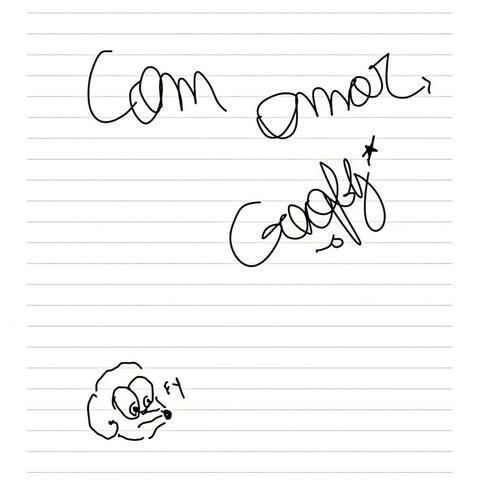 Com amor,
Goofy
FY